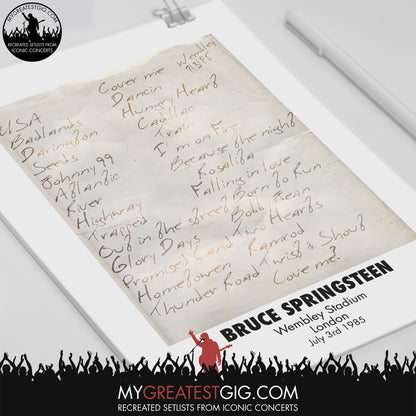 MYGREATESTGIG.COM
RECREATED SETLISTS FROM
ICONIC CONCERTS
Wembley
7/3/85
USA
Badlands
Darington
Seeds
Johnny 99
Atlantic
River
Highway
Trapped
Out in the street
Glory Days
Promised Land
Homefowen
Thunder Road
Cover me
Dancin
Hungry Heart
Cadillac
Train
I'm on Fire
Because the night
Rosalita
Falling in love
Born to Run
Bobby Jean
Two Hearts
Ramrod
Twist & Shout
Love me?
BRUCE SPRINGSTEEN
Wembley Stadium
London
July 3rd 1985
MYGREATESTGIG.COM
RECREATED SETLISTS FROM ICONIC CONCERTS